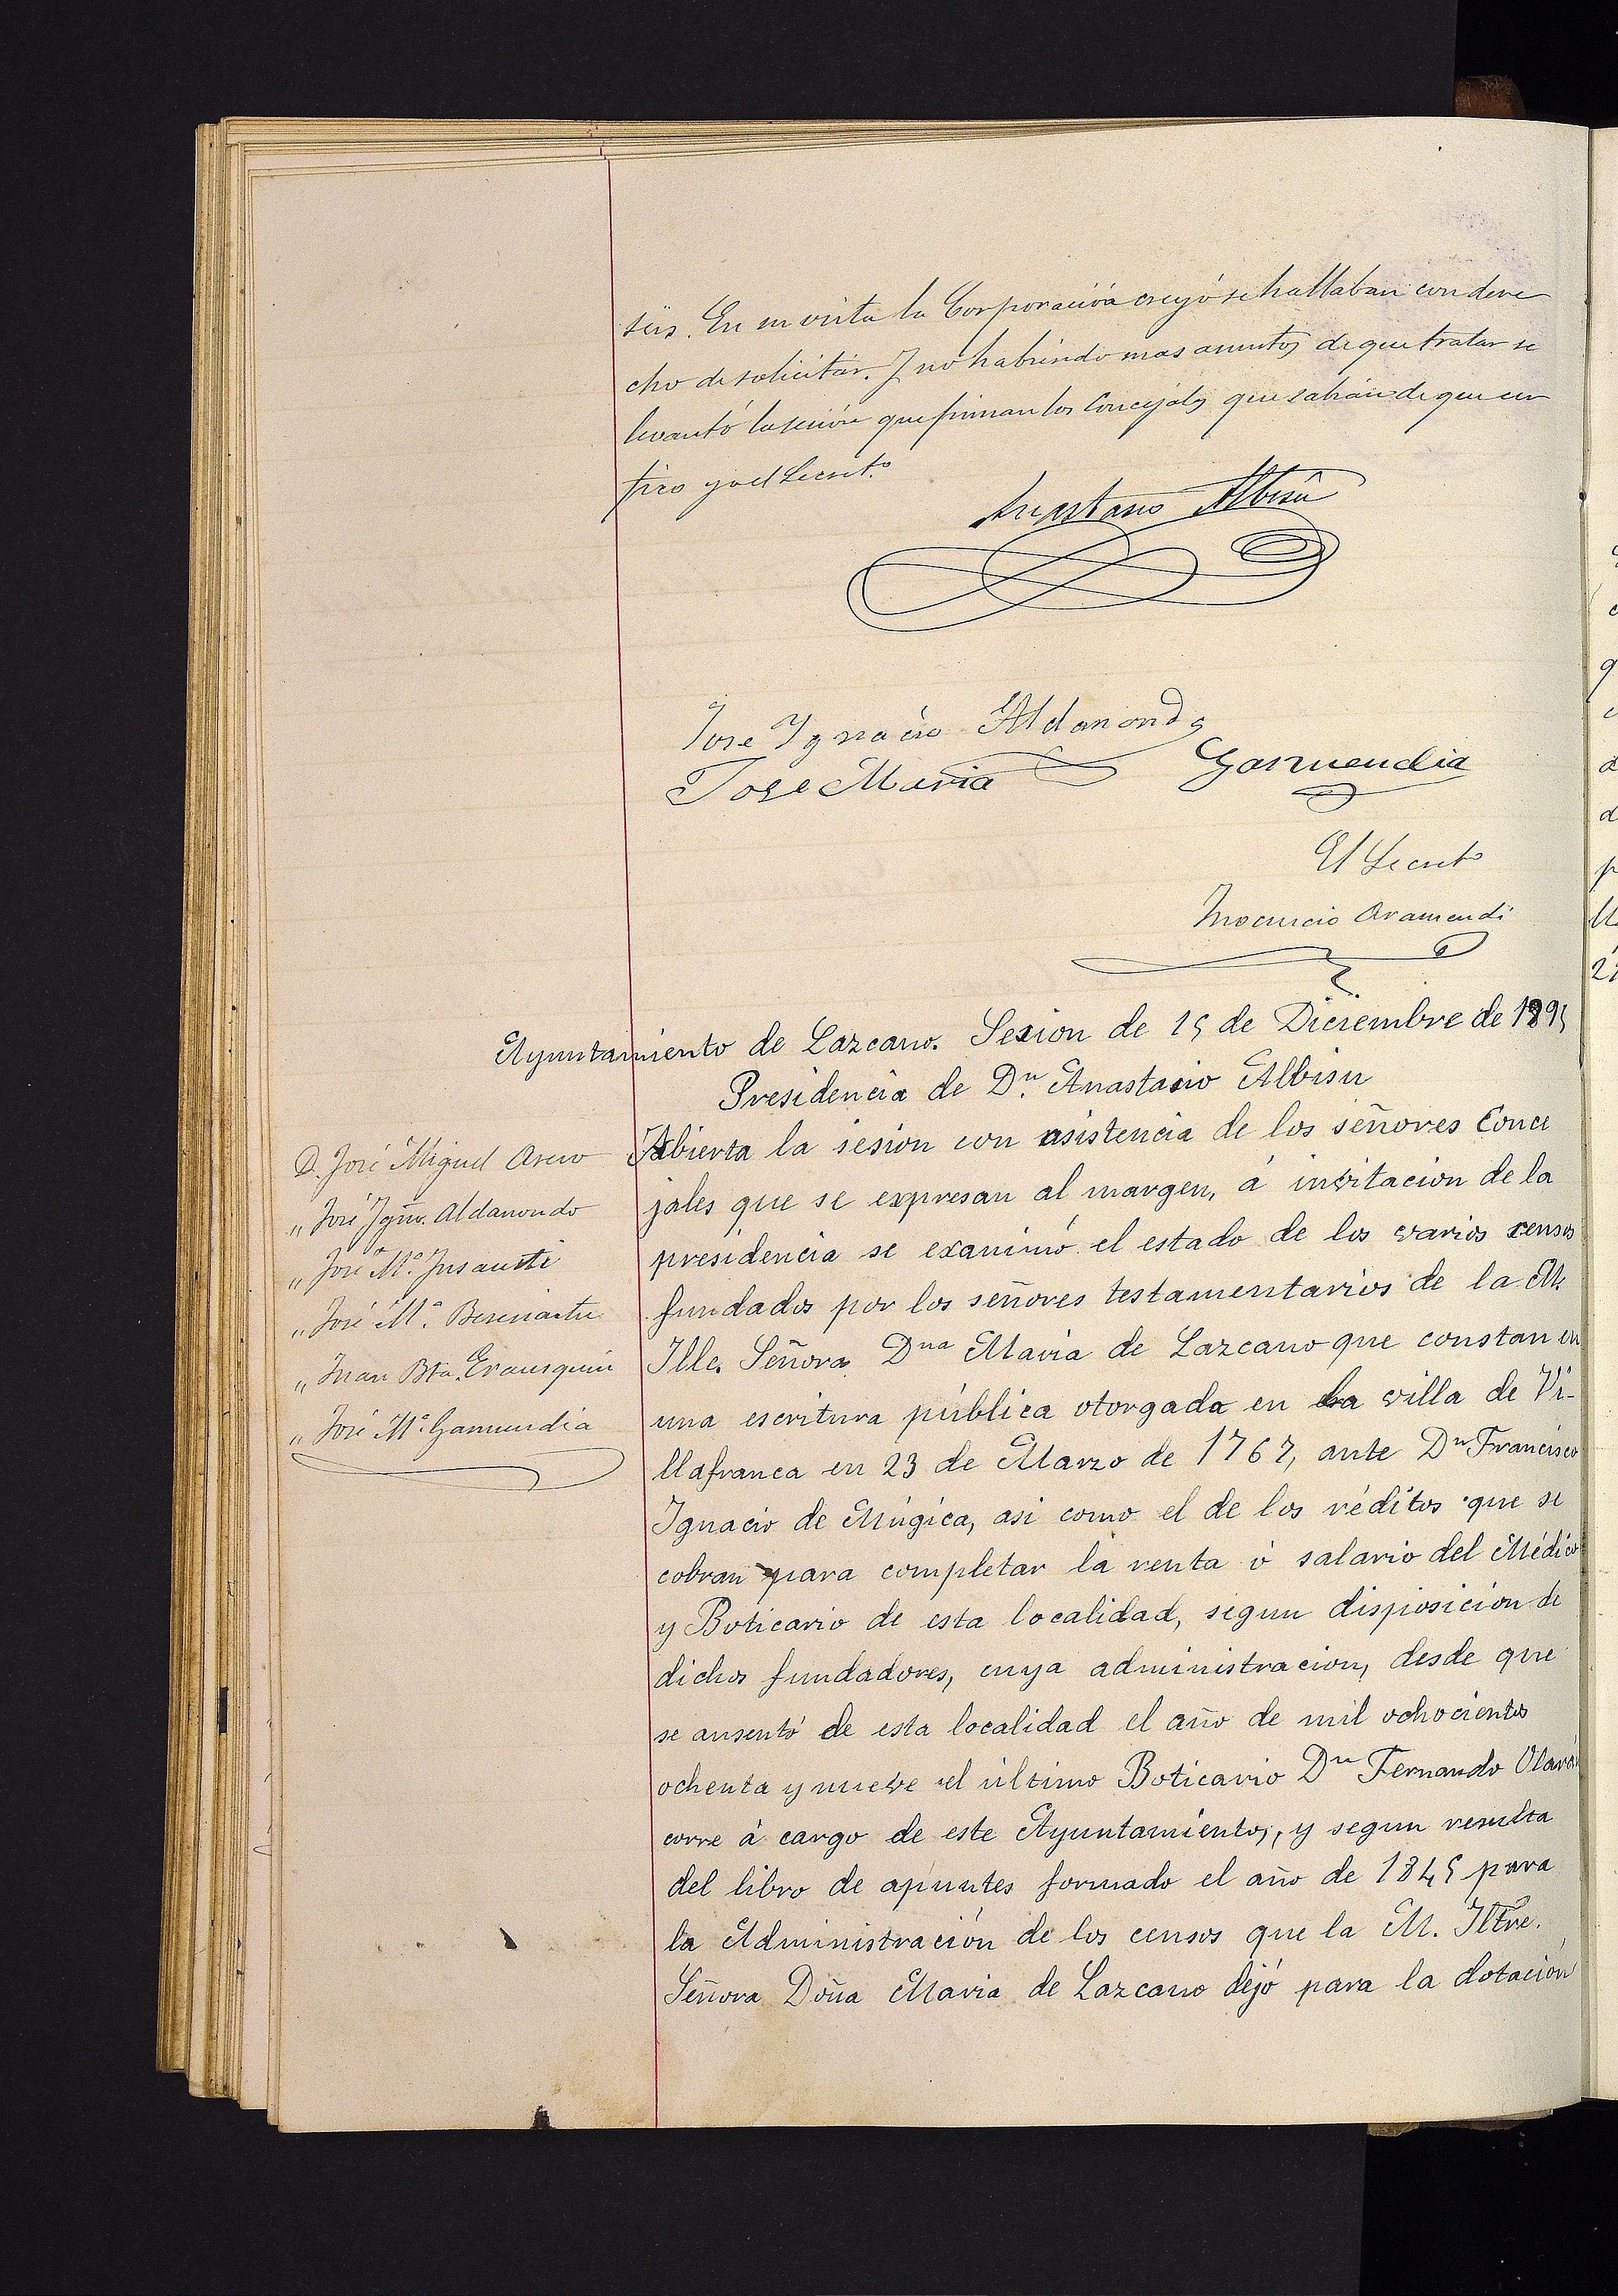 sus. En su vista la Corporación creyó se hallaban con dere
cho de solicitar. Y no habiendo mas asuntos de que tratar se
levantó la sesión que firman los Concejales que sabían de que cer
tifico yo el Secret.º
Anastasio Albisu
Jose Ygnacio Aldanondo
Jose Maria Garmendia
El Secret.º
Inocencio Aramendi
Ayuntamiento de Lazcano. Sesion de 15 de Diciembre de 1895
Presidencia de D.n Anastasio Albisu
D. José Miguel Asero
„ José Ygn.º Aldanondo
„ José M.ª Insausti
„ José M.ª Beresiartu
„ Juan Bta. Erausquin
„ José M.ª Garmendia
Abierta la sesion con asistencia de los señores Conce
jales que se expresan al margen, á invitacion de la
presidencia se examinó el estado de los varios censos
fundados por los señores testamentarios de la M.
Ille. Señora Dna Maria de Lazcano que constan en
una escritura pública otorgada en la villa de Vi-
llafranca en 23 de Marzo de 1767, ante Dn Francisco
Ignacio de Múgica, asi como el de los réditos que se
cobran para completar la renta ó salario del Médico
y Boticario de esta localidad, segun disposicion de
dichos fundadores, cuya administracion, desde que
se ausentó de esta localidad el año de mil ochocientos
ochenta y nueve el último Boticario Dn Fernando
corre á cargo de este Ayuntamiento, y segun resulta
del libro de apuntes formado el año de 1845 para
la Administración de los censos que la M. Iltre.
Señora Doña Maria de Lazcano dejó para la dotación